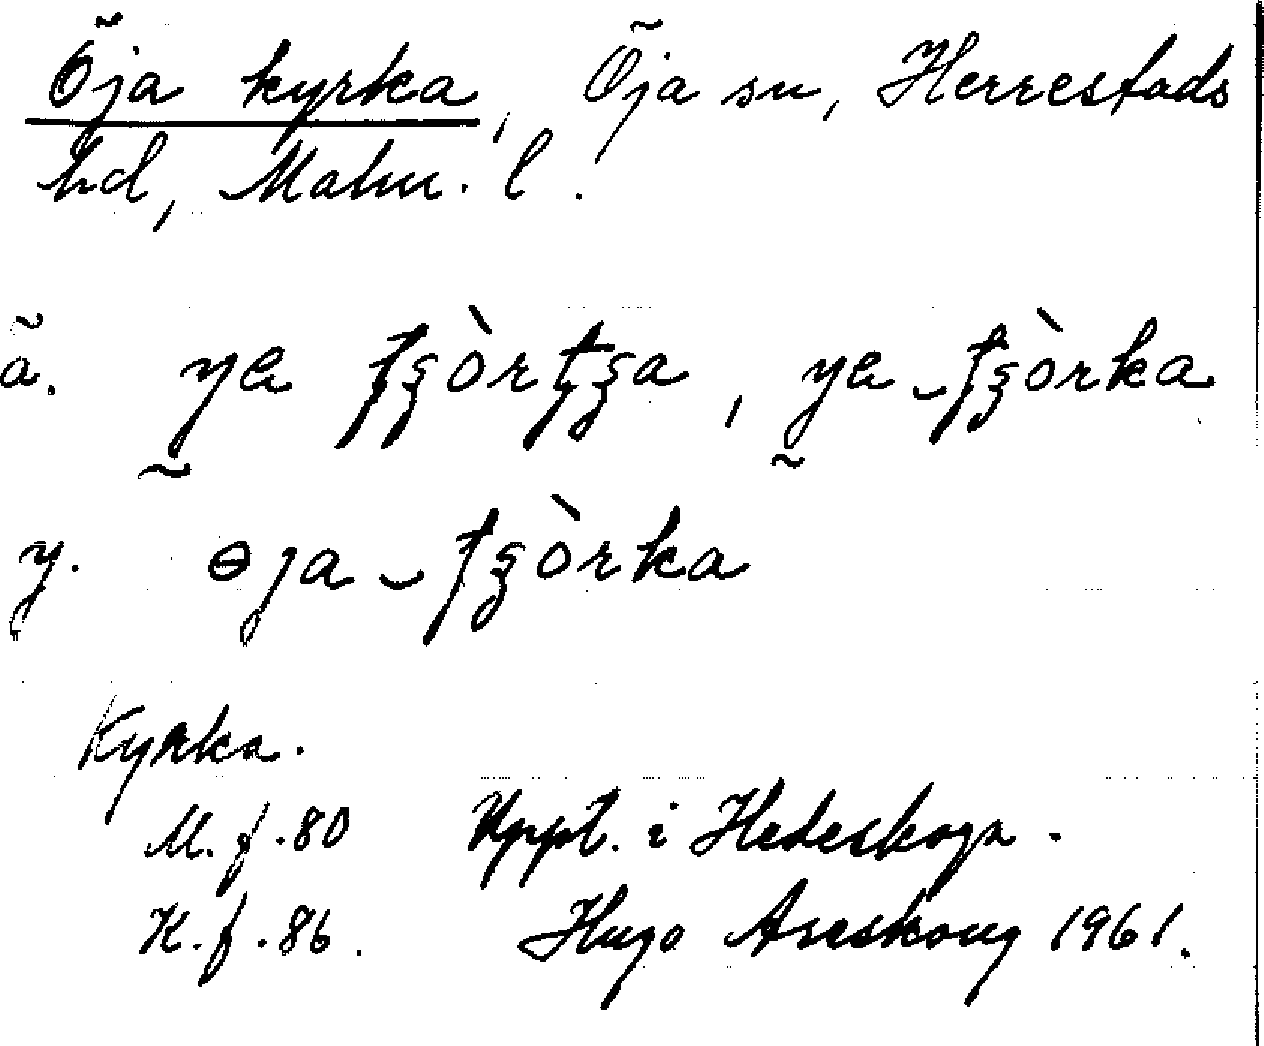 Öja kyrka, Öja sn, Herrestads
hd, Malm. l.
ä. ya tʂòrtʂa, ya‿tʂòrka
y. ɵja‿tʂòrka
Kyrka.
M. f. 80 Uppt. i Hedeskoga.
K. f. 86. Hugo Areskoug 1961.